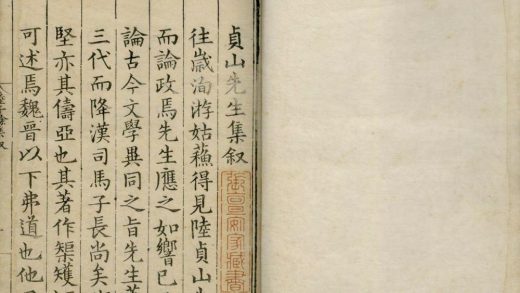 貞山先生集叙
家藏書
往歲洵游姑蘓得見陸貞山
而論政焉先生應之如響已
論古今文學異同之旨先生
三代而降漢司馬子長尚矣
堅亦其儔亞也其著作槼矱
可述焉魏晉以下弗道也他